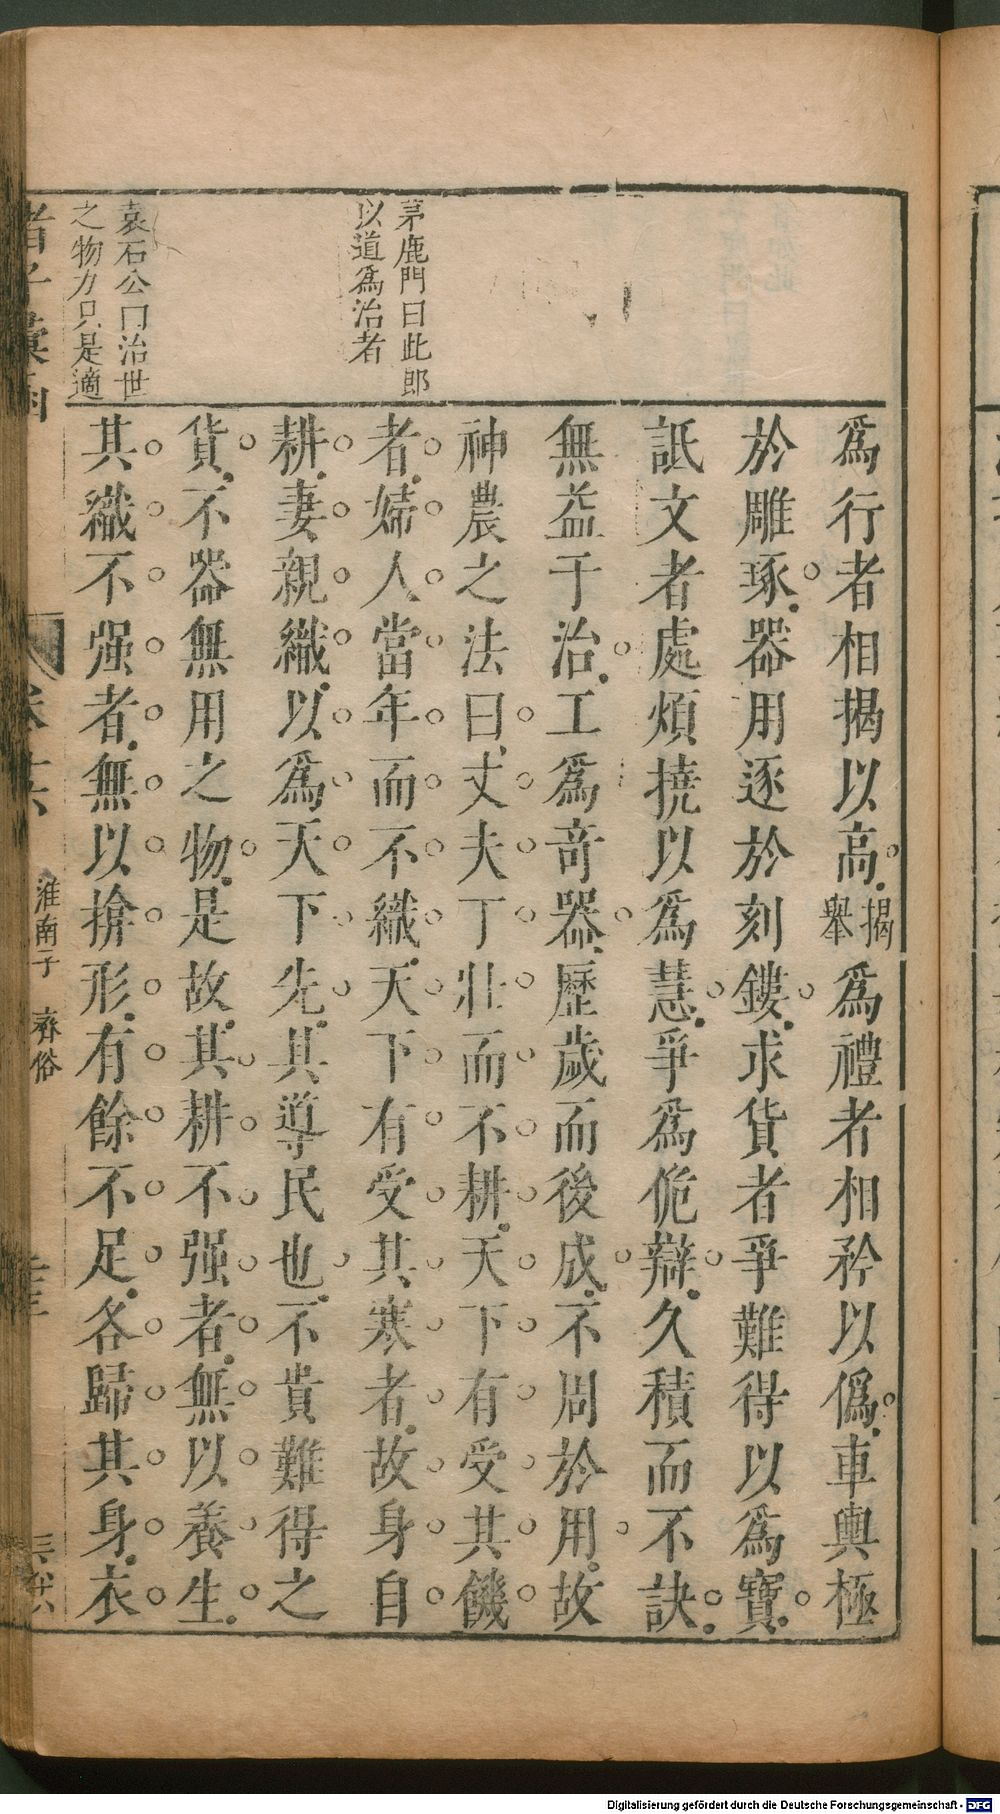 茅鹿門曰此郎
以道爲治者
袁石公曰治世
之物力只是適
爲行者相揭以高揭舉爲禮者相矜以僞車輿極
於雕琢器用逐於刻鏤求貨者爭難得以爲寶
詆文者處煩撓以爲慧爭爲佹辯久積而不訣
無益于治工爲奇器歷歲而後成不周於用故
神農之法曰丈夫丁壯而不耕天下有受其饑
者婦人當年而不織天下有受其寒者故身自
耕妻親織以爲天下先其導民也不貴難得之
貨不器無用之物是故其耕不强者無以養生
其織不强者無以揜形有餘不足各歸其身衣
諸子彙函
卷十六
淮南子 齊俗
Digitalisierung gefördert durch die Deutsche Forschungsgemeinschaft - DFG